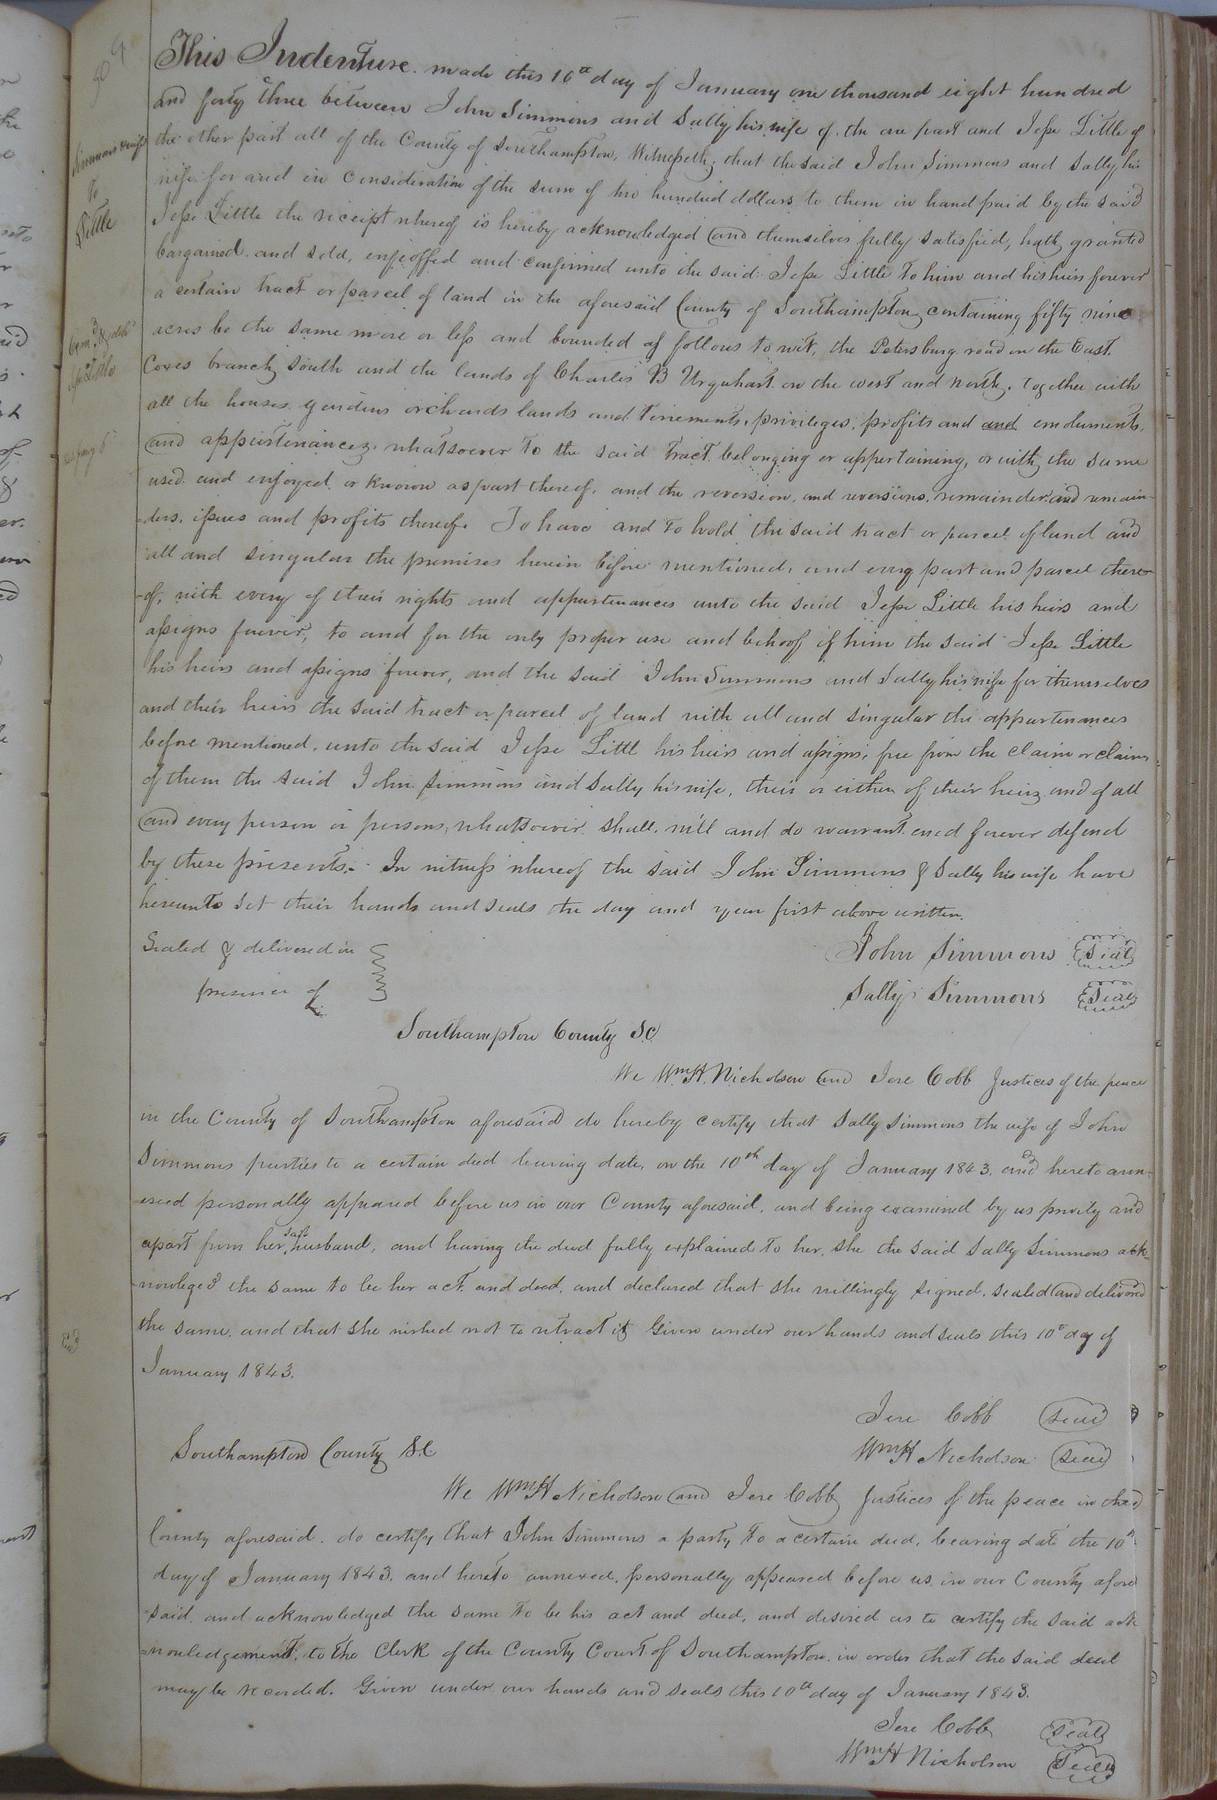 This Indenture made this 10th day of January one thousand eight hundred
and forty three between John Simmons and Sally his wife of the one part and Jesse Little of
the other part all of the County of Southampton, Witnesseth, that the said John Simmons and Sally his
wife for and in Consideration of the sum of two hundred dollars to them in hand paid by the said
Jesse Little the receipt whereof is hereby acknowledged and themselves fully satisfied, hath granted
bargained and sold, enfeoffed and confirmed unto the said Jesse Little to him and his heirs forever
a certain tract or parcel of land in the aforesaid County of Southampton, containing fifty nine
acres be the same more or less and bounded as follows to wit, the Petersburg road on the East
Coxes branch, South and the lands of Charles B Urquhart on the west and north, together with
all the houses gardens orchards lands and Tenements, privileges, profits and and emoluments,
and appurtenances, whatsoever to the said Tract belonging or appertaining, or with the same
used and enjoyed or known as part thereof, and the reversion, and reversions, remainder and remain-
-ders, issues and profits thereof. To have and to hold the said tract or parcel of land and
all and singular the premises herein before mentioned, and every part and parcel there-
-of, with every of their rights and appurtenances unto the said Jesse Little his heirs and
assigns forever, to and for the only proper use and behoof of him the said Jesse Little
his heirs and assigns forever, and the said John Simmons and Sally his wife for themselves
and their heirs the said tract or parcel of land with all and singular the appurtenances
before mentioned, unto the said Jesse Littl his heirs and assigns, free from the claim or claims
of them the said John Simmons and Sally his wife, their or either of their heirs, and of all
and every person or persons, whatsoever shall, will and do warrant and forever defend
by these presents. In witness whereof the said John Simmons & Sally his wife have
hereunto set their hands and seals the day and year first above written.
Sealed & delivered in
presence of
John Simmons Seal
Sally Simmons Seal
Southampton County SC
We Wm H. Nicholson and Jere Cobb Justices of the peace
in the County of Southampton aforesaid do hereby certify that Sally Simmons the wife of John
Simmons parties to a certain deed bearing date, on the 10th day of January 1843, and hereto ann-
-exed personally appeared before us in our County aforesaid, and being examined by us privily and
apart from her said husband, and having the deed fully explained to her, she the said Sally Simmons ack-
-nowleged the same to be her act and deed, and declared that she willingly signed, sealed and delivered
the same, and that she wished not to retract it, Given under our hands and seals this 10th day of
January 1843.
Jere Cobb seal
Wm H Nicholson seal
Southampton County SC
We Wm H Nicholson and Jere Cobb Justices of the peace in the
County aforesaid, do certify that John Simmons a party to a certain deed, bearing date the 10th
day of January 1843, and hereto annexed, personally appeared before us in our County afore
said, and acknowledged the same to be his act and deed, and desired us to certify the said ack
nowledgement, to the Clerk of the County Court of Southampton in order that the said deed
may be recorded. Given under our hands and seals this 10th day of January 1843.
Jere Cobb Seal
Wm H Nicholson Seal
Simmons & wife
To
Little